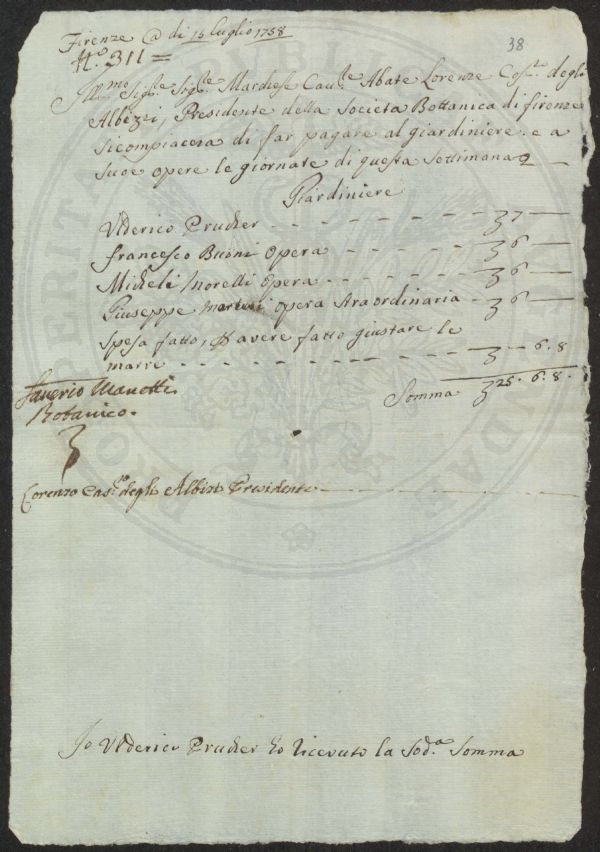 38
Firenze @ di 15 Luglio 1758
N.o 311 =
Ill.mo Sig.le Sig.le Marchese Cau.le Abate Lorenzo Cos.te degli
Albizzi, Presidente della Societa Bottanica di firenze
sicompiacera di far pagare al giardiniere. e a
suoe opere le giornate di questa settimana
Giardiniere
Vlderico Prucker - - - - - - - 7 —
francesco Buoni Opera - - - - 6 —
Micheli Morelli Opera - - - - - 6 —
Giuseppe Martini opera straordinaria - 6 —
spesa fatto, p avere fatto giustare le
marre - - - - - - - - - - - — 6. 8
Somma 25. 6. 8.
Saverio Manetti
Botanico.
Lorenzo Cas.to degli Albizi Presidente
Io Vlderico Prucker ho ricevuto la Sod.a Somma
PROSPERITATI PUBLICAE